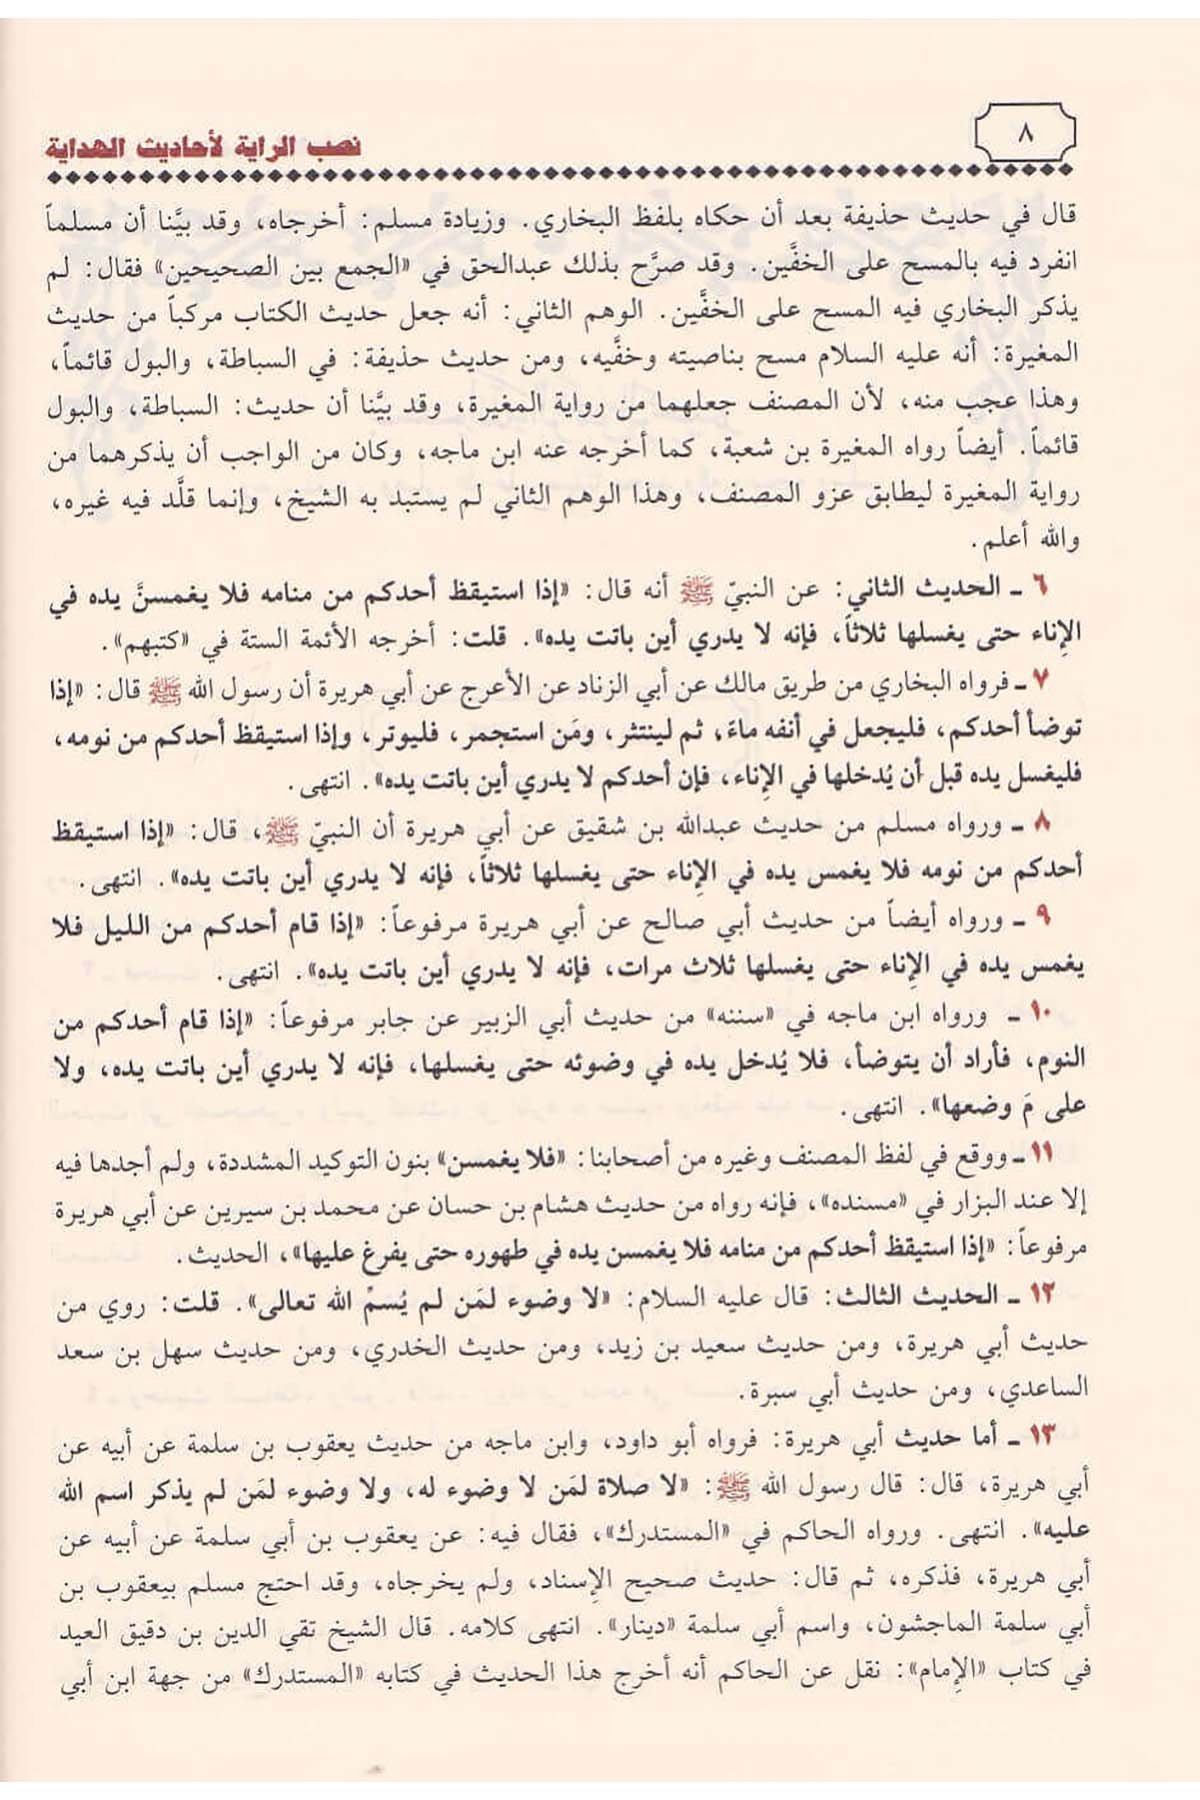 ٨
نصب الراية لأحاديث الهداية
قال في حديث حذيفة بعد أن حكاه بلفظ البخاري. وزيادة مسلم: أخرجاه، وقد بيَّنا أن مسلماً
انفرد فيه بالمسح على الخفَّين. وقد صرَّح بذلك عبدالحق في «الجمع بين الصحيحين» فقال: لم
يذكر البخاري فيه المسح على الخفَّين. الوهم الثاني: أنه جعل حديث الكتاب مركباً من حديث
المغيرة: أنه عليه السلام مسح بناصيته وخفَّيه، ومن حديث حذيفة: في السباطة، والبول قائماً،
وهذا عجب منه، لأن المصنف جعلهما من رواية المغيرة، وقد بيَّنا أن حديث: السباطة، والبول
قائماً. أيضاً رواه المغيرة بن شعبة، كما أخرجه عنه ابن ماجه، وكان من الواجب أن يذكرهما من
رواية المغيرة ليطابق عزو المصنف، وهذا الوهم الثاني لم يستبد به الشيخ، وإنما قلَّد فيه غيره،
والله أعلم.
٦ ـ الحديث الثاني: عن النبيّ ﷺ أنه قال: «إذا استيقظ أحدكم من منامه فلا يغمسنَّ يده في
الإِناء حتى يغسلها ثلاثاً، فإنه لا يدري أين باتت يده». قلت: أخرجه الأئمة الستة في «كتبهم».
٧ ـ فرواه البخاري من طريق مالك عن أبي الزناد عن الأعرج عن أبي هريرة أن رسول الله ﷺ قال: «إذا
توضأ أحدكم، فليجعل في أنفه ماءً، ثم لينتثر، ومَن استجمر، فليوتر، وإذا استيقظ أحدكم من نومه،
فليغسل يده قبل أن يُدخلها في الإِناء، فإن أحدكم لا يدري أين باتت يده». انتهى.
٨ ـ ورواه مسلم من حديث عبدالله بن شقيق عن أبي هريرة أن النبيّ ﷺ، قال: «إذا استيقظ
أحدكم من نومه فلا يغمس يده في الإِناء حتى يغسلها ثلاثاً، فإنه لا يدري أين باتت يده». انتهى.
٩ ـ ورواه أيضاً من حديث أبي صالح عن أبي هريرة مرفوعاً: «إذا قام أحدكم من الليل فلا
يغمس يده في الإِناء حتى يغسلها ثلاث مرات، فإنه لا يدري أين باتت يده». انتهى.
١٠ ـ ورواه ابن ماجه في «سننه» من حديث أبي الزبير عن جابر مرفوعاً: «إذا قام أحدكم من
النوم، فأراد أن يتوضأ، فلا يُدخل يده في وضوئه حتى يغسلها، فإنه لا يدري أين باتت يده، ولا
على مَ وضعها». انتهى.
١١ ـ ووقع في لفظ المصنف وغيره من أصحابنا: «فلا يغمسن» بنون التوكيد المشددة، ولم أجدها فيه
إلا عند البزار في «مسنده»، فإنه رواه من حديث هشام بن حسان عن محمد بن سيرين عن أبي هريرة
مرفوعاً: «إذا استيقظ أحدكم من منامه فلا يغمسن يده في طهوره حتى يفرغ عليها»، الحديث.
١٢ ـ الحديث الثالث: قال عليه السلام: «لا وضوء لمَن لم يُسمْ الله تعالى». قلت: روي من
حديث أبي هريرة، ومن حديث سعيد بن زيد، ومن حديث الخدري، ومن حديث سهل بن سعد
الساعدي، ومن حديث أبي سبرة.
١٣ ـ أما حديث أبي هريرة: فرواه أبو داود، وابن ماجه من حديث يعقوب بن سلمة عن أبيه عن
أبي هريرة، قال: قال رسول الله ﷺ: «لا صلاة لمَن لا وضوء له، ولا وضوء لمَن لم يذكر اسم الله
عليه». انتهى. ورواه الحاكم في «المستدرك»، فقال فيه: عن يعقوب بن أبي سلمة عن أبيه عن
أبي هريرة، فذكره، ثم قال: حديث صحيح الإِسناد، ولم يخرجاه، وقد احتج مسلم بيعقوب بن
أبي سلمة الماجشون، واسم أبي سلمة «دينار». انتهى كلامه. قال الشيخ تقي الدين بن دقيق العيد
في كتاب «الإِمام»: نقل عن الحاكم أنه أخرج هذا الحديث في كتابه «المستدرك» من جهة ابن أبي